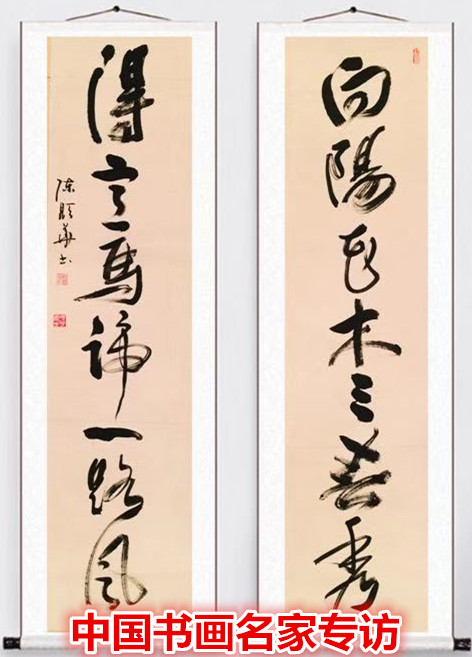 向陽花木三春秀
得意馬蹄一路风
陈華书
中国书画名家专访